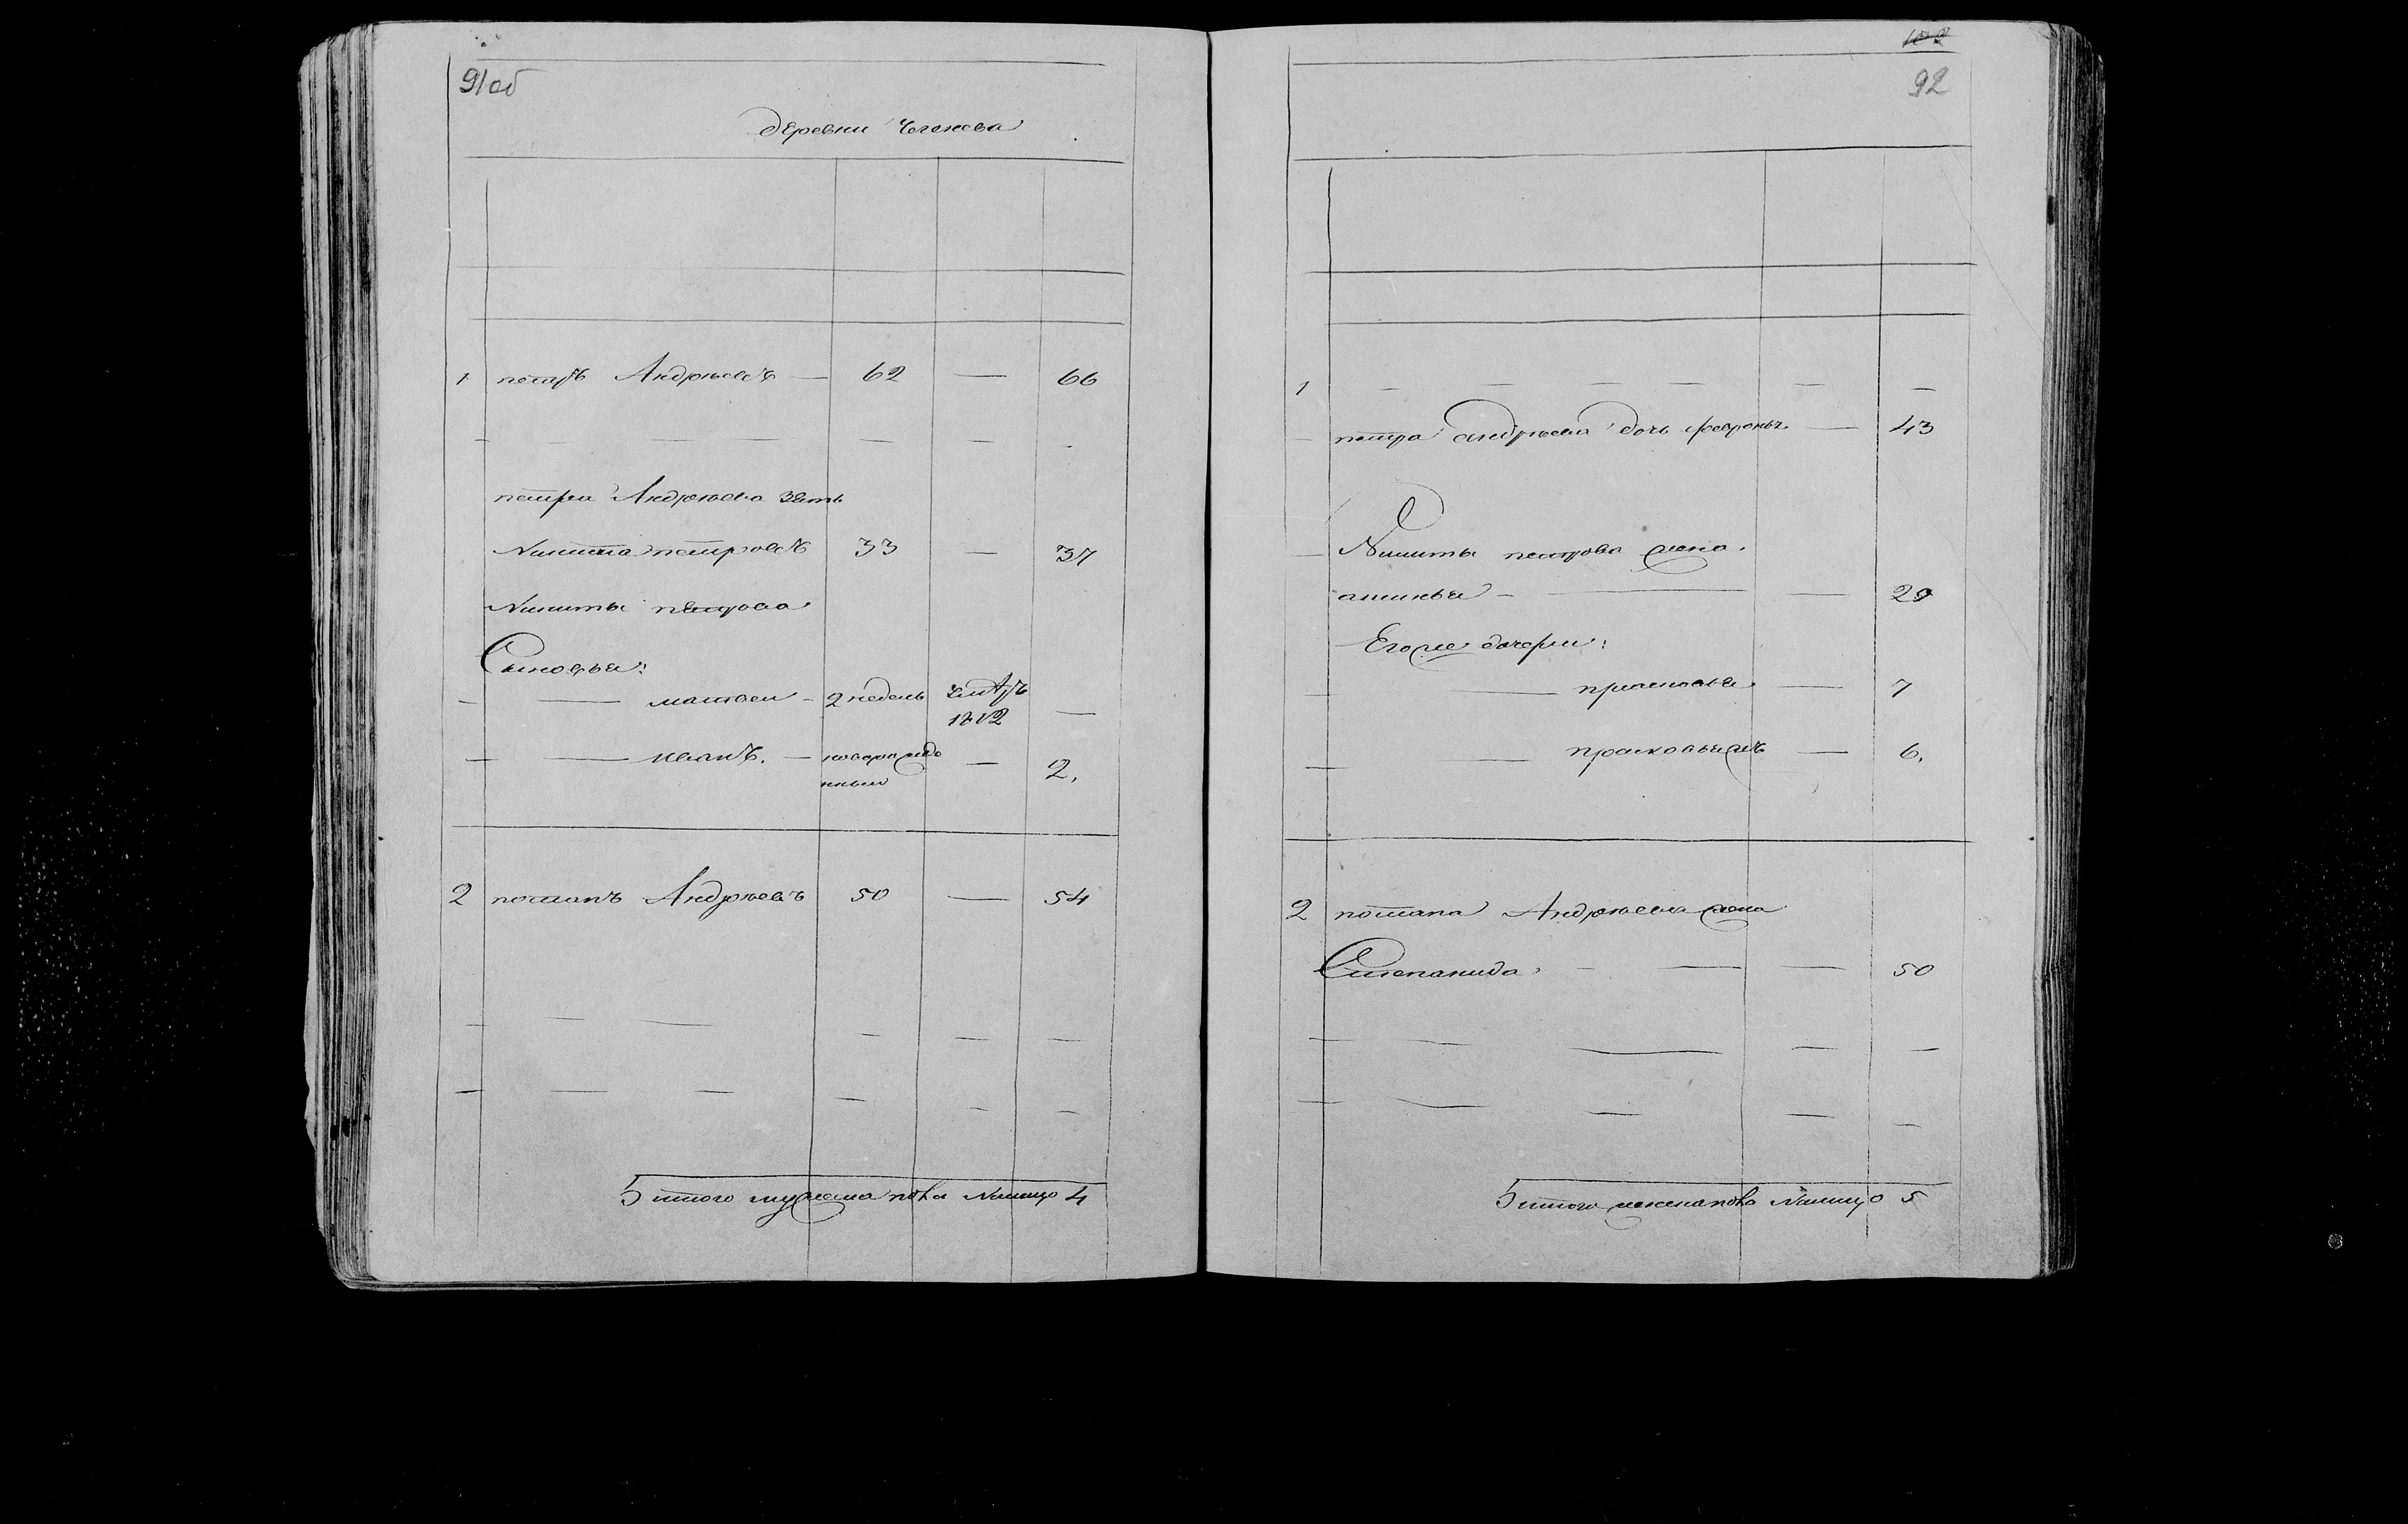 91об
деревни Чегенева
1 петръ Андрѣевъ — 62 — 66
петра Андрѣева зять
Никита петровъ 33 — 37
Никиты петрова
Сыновья:
матвеи - 2 недель умѣръ 1812 —
иванъ. — новорожденныи — 2.
2 потапъ Андрѣевъ 50 — 54
итого мужеска пола Налицо 4
102
92
1
петра андрѣева дочь февронья — 43
Никиты петрова жена
аксинья — — 29
Егоже дочери:
прасковья — 7
прасковьяжъ — 6.
2 потапа Андрѣева жена
Степанида — — 50
итого женска пола Налицо 5